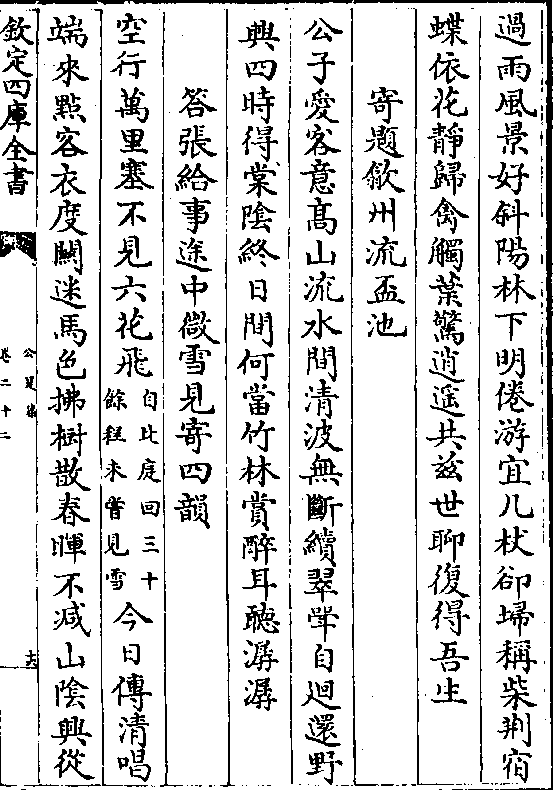 過雨風景好斜陽林下明倦游宜几杖卻埽稱柴荆宿
蝶依花靜歸禽觸葉驚逍遥共兹世聊復得吾生
寄題歙州流盃池
公子愛客意髙山流水間清波無斷續翠巘自迴還野
興四時得棠陰終日閒何當竹林賞醉耳聽潺潺
答張給事途中微雪見寄四韻
空行萬里塞不見六花飛自北庭回三十餘程未嘗見雪今日傳清唱
端來點客衣度闕迷馬色拂樹散春暉不减山陰興從
欽定四庫全書
公是集
卷二十二
十六